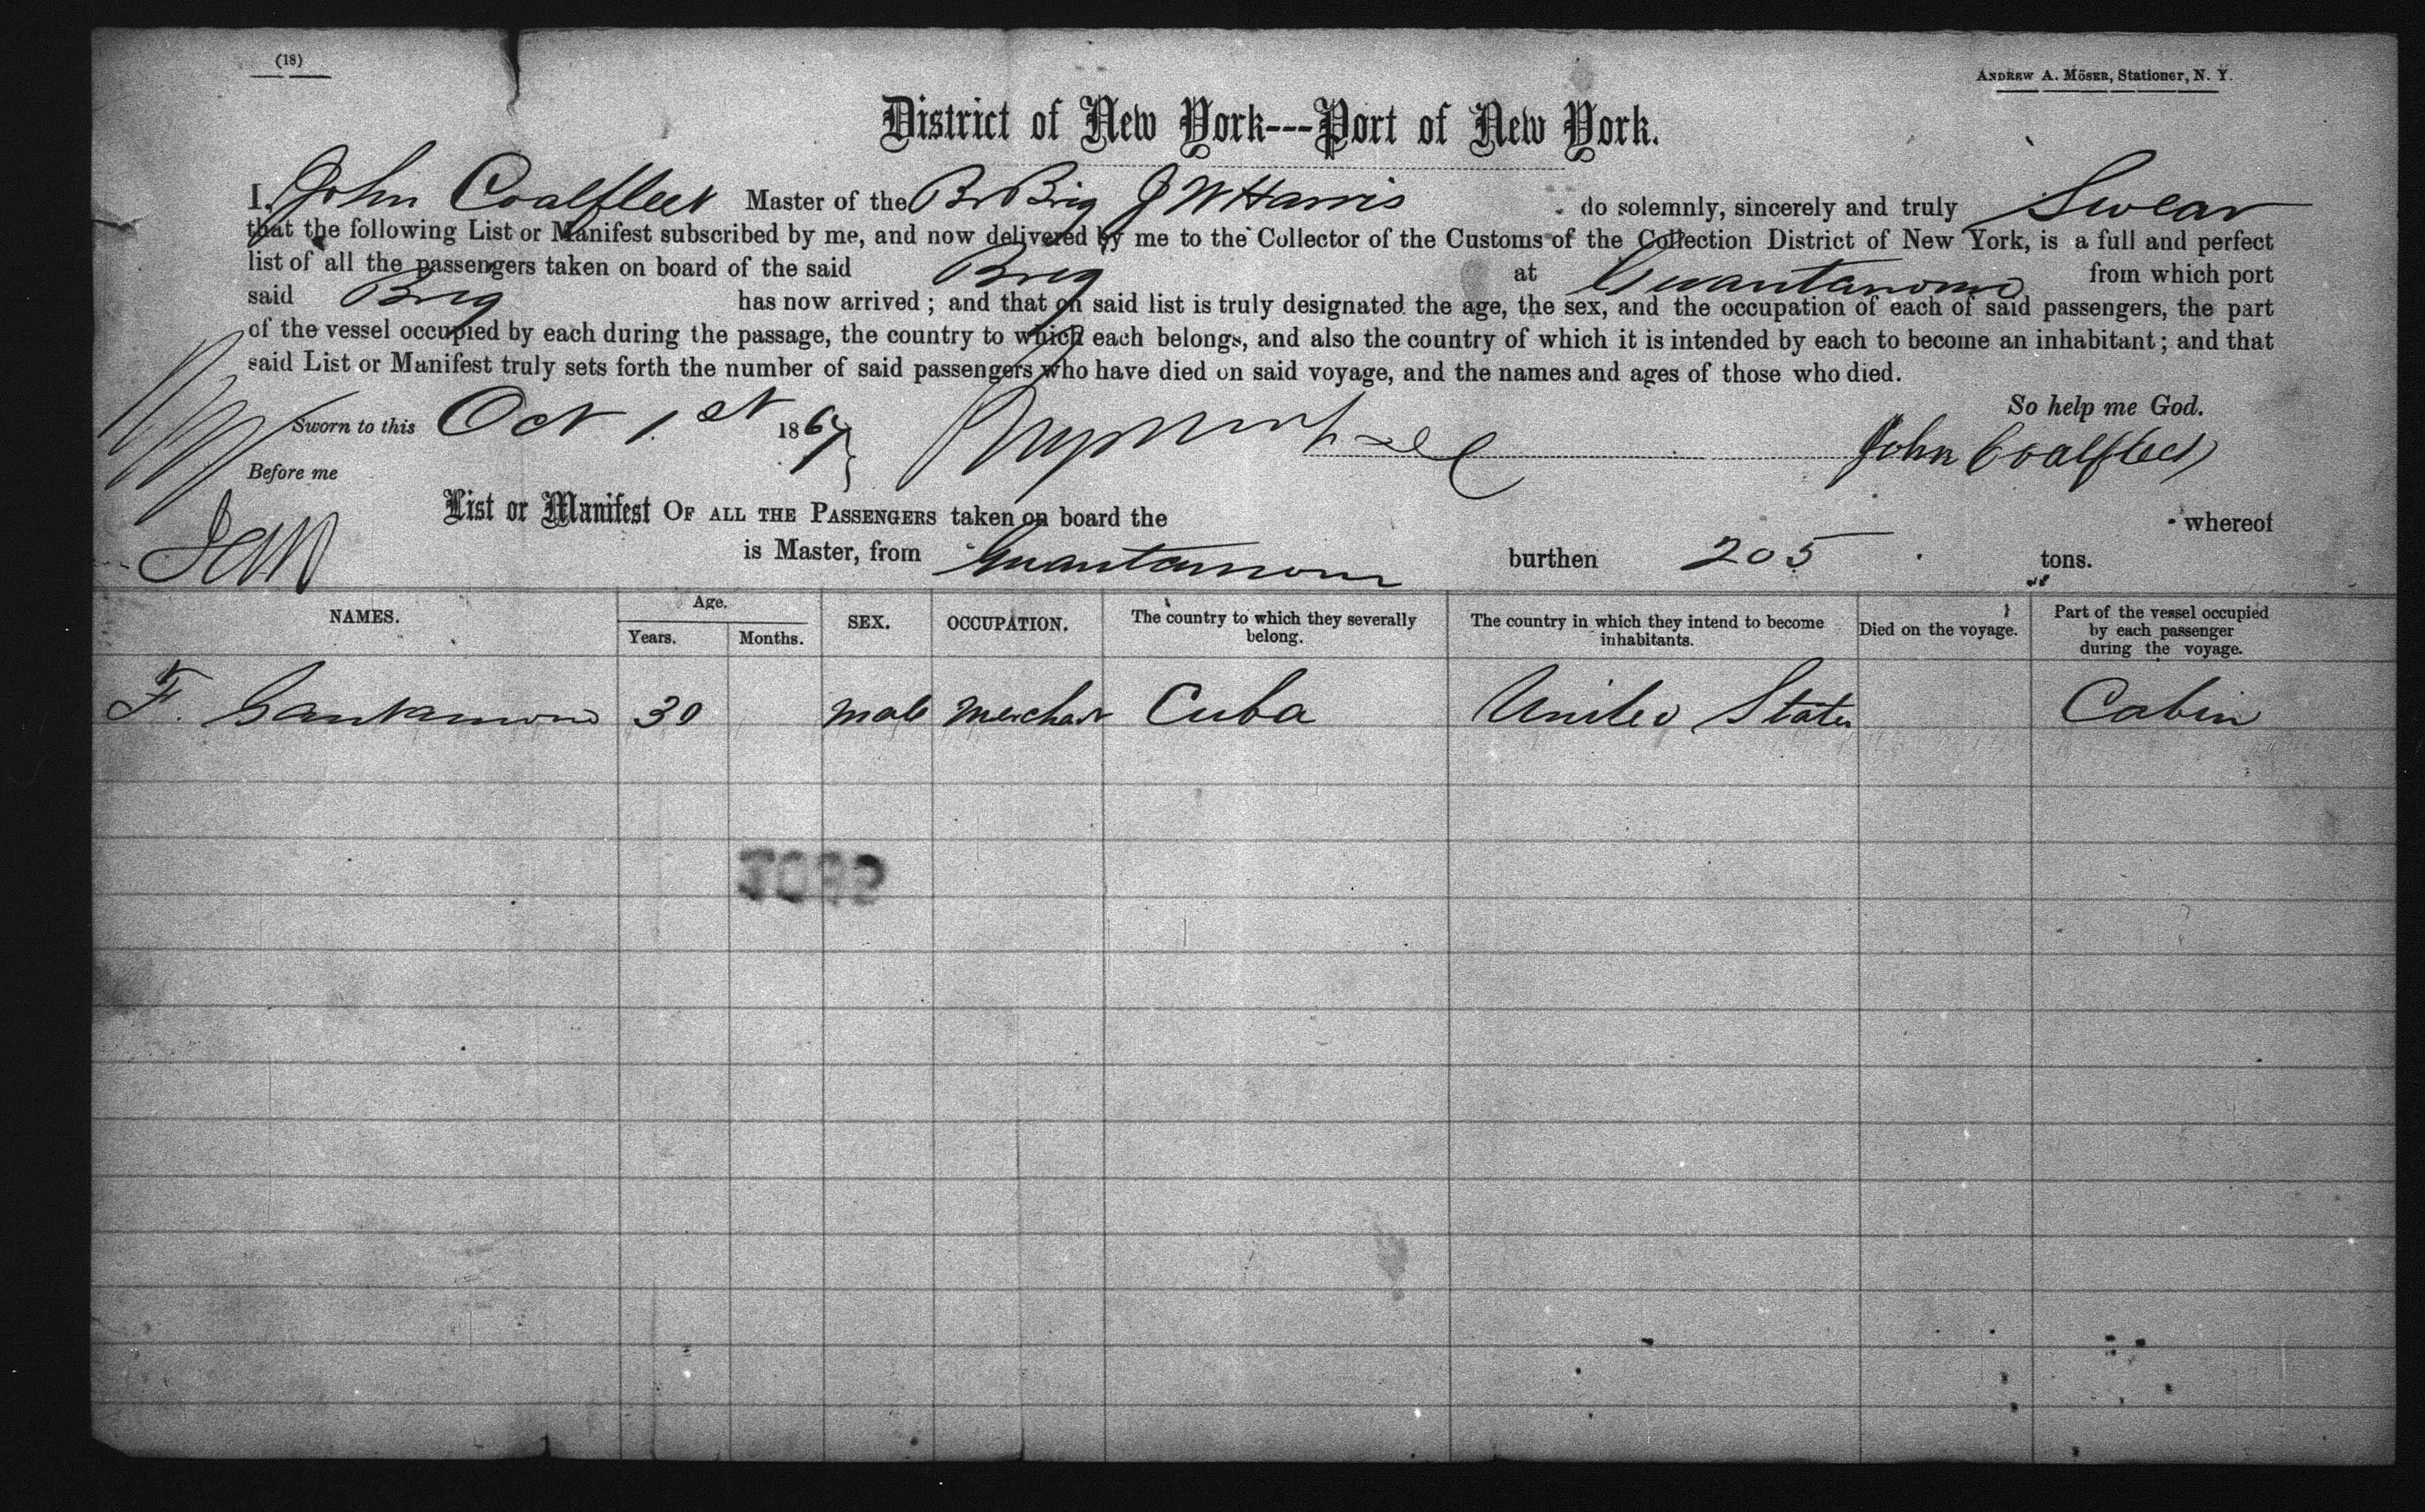 (18)
ANDREW A. MÖSER, Stationer, N. Y.
District of New York---Port of New York.
I, John Coalfleet Master of the Br Brig J W Harris do solemnly, sincerely and truly Swear
that the following List or Manifest subscribed by me, and now delivered by me to the Collector of the Customs of the Collection District of New York, is a full and perfect
list of all the passengers taken on board of the said Brig at Guantanomo from which port
said Brig has now arrived ; and that on said list is truly designated the age, the sex, and the occupation of each of said passengers, the part
of the vessel occupied by each during the passage, the country to which each belongs, and also the country of which it is intended by each to become an inhabitant ; and that
said List or Manifest truly sets forth the number of said passengers who have died on said voyage, and the names and ages of those who died.
So help me God.
Sworn to this Oct 1st 1867
John Coalfleet
Before me
List or Manifest OF ALL THE PASSENGERS taken on board the whereof
is Master, from Guantanomo burthen 205 tons.
NAMES. Age. Years. Months. SEX. OCCUPATION. The country to which they severally belong. The country in which they intend to become inhabitants. Died on the voyage. Part of the vessel occupied by each passenger during the voyage.
F. 30 male Merchant Cuba United States Cabin